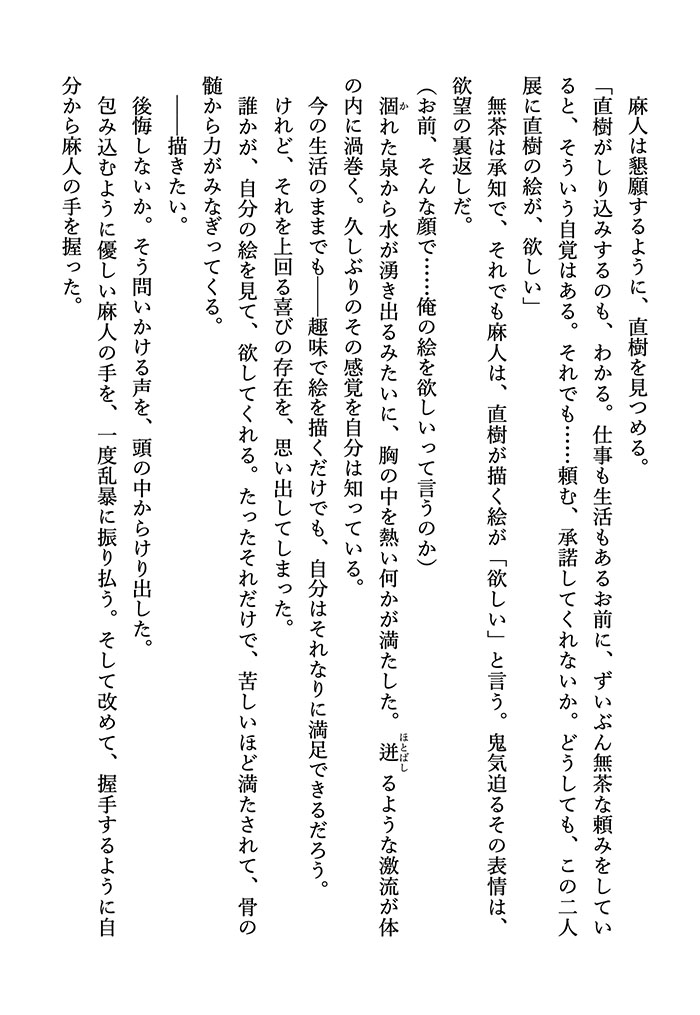 麻人は懇願するように、直樹を見つめる。
「直樹がしり込みするのも、わかる。仕事も生活もあるお前に、ずいぶん無茶な頼みをしてい
ると、そういう自覚はある。それでも……頼む、承諾してくれないか。どうしても、この二人
展に直樹の絵が、欲しい」
無茶は承知で、それでも麻人は、直樹が描く絵が「欲しい」と言う。鬼気迫るその表情は、
欲望の裏返しだ。
（お前、そんな顔で……俺の絵を欲しいって言うのか）
涸か れた泉から水が湧き出るみたいに、胸の中を熱い何かが満たした。迸ほとばし るような激流が体
の内に渦巻く。久しぶりのその感覚を自分は知っている。
今の生活のままでも――趣味で絵を描くだけでも、自分はそれなりに満足できるだろう。
けれど、それを上回る喜びの存在を、思い出してしまった。
誰かが、自分の絵を見て、欲してくれる。たったそれだけで、苦しいほど満たされて、骨の
髄から力がみなぎってくる。
――描きたい。
後悔しないか。そう問いかける声を、頭の中からけり出した。
包み込むように優しい麻人の手を、一度乱暴に振り払う。そして改めて、握手するように自
分から麻人の手を握った。